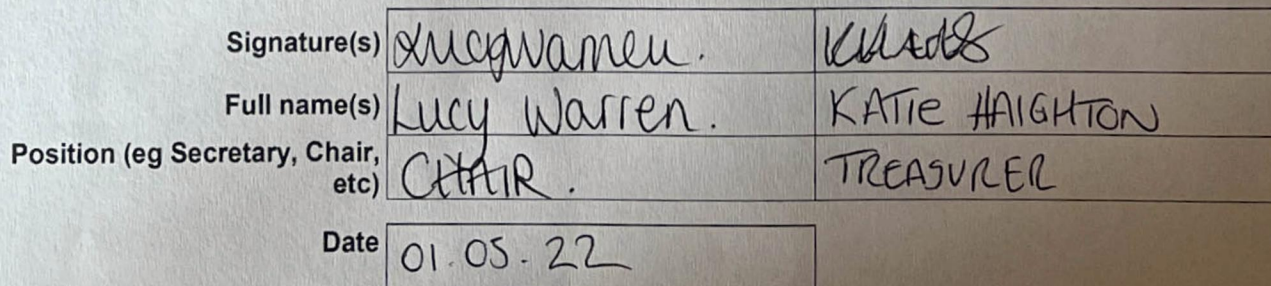 Signature(s) Lucywarren.
Full name(s) Lucy Warren. KATIE HAIGHTON
Position (eg Secretary, Chair,
etc) CHAIR. TREASURER
Date 01.05.22